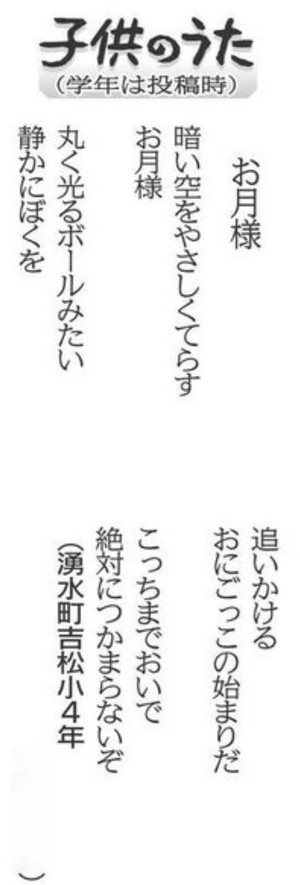 子供のうた
(学年は投稿時)
お月様
暗い空をやさしくてらす
お月様
丸く光るボールみたい
静かにぼくを
追いかける
おにごっこの始まりだ
こっちまでおいで
絶対につかまらないぞ
(湧水町吉松小4年
)